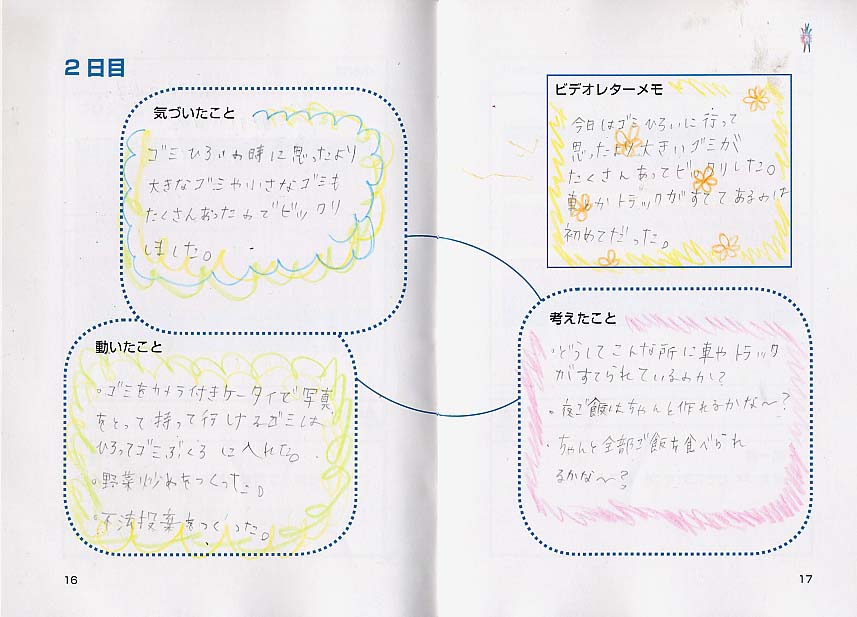 2日目
気づいたこと
ゴミひろいの時に思ったより
大きなゴミや小さなゴミも
たくさんあったのでビックリ
しました。
動いたこと
・ゴミをカメラ付きケータイで写真
をとって持って行けるゴミは
ひろってゴミぶくろに入れた。
・野菜炒めをつくった。
・不法投棄をつくった。
16
ビデオレターメモ
今日はゴミひろいに行って
思ったより大きいゴミが
たくさんあってビックリした。
車とかトラックがすててあるのは
初めてだった。
考えたこと
・どうしてこんな所に車やトラック
がすてられているのか?
・夜ご飯はちゃんと作れるかな〜?
・ちゃんと全部ご飯を食べられ
るかな〜?
17